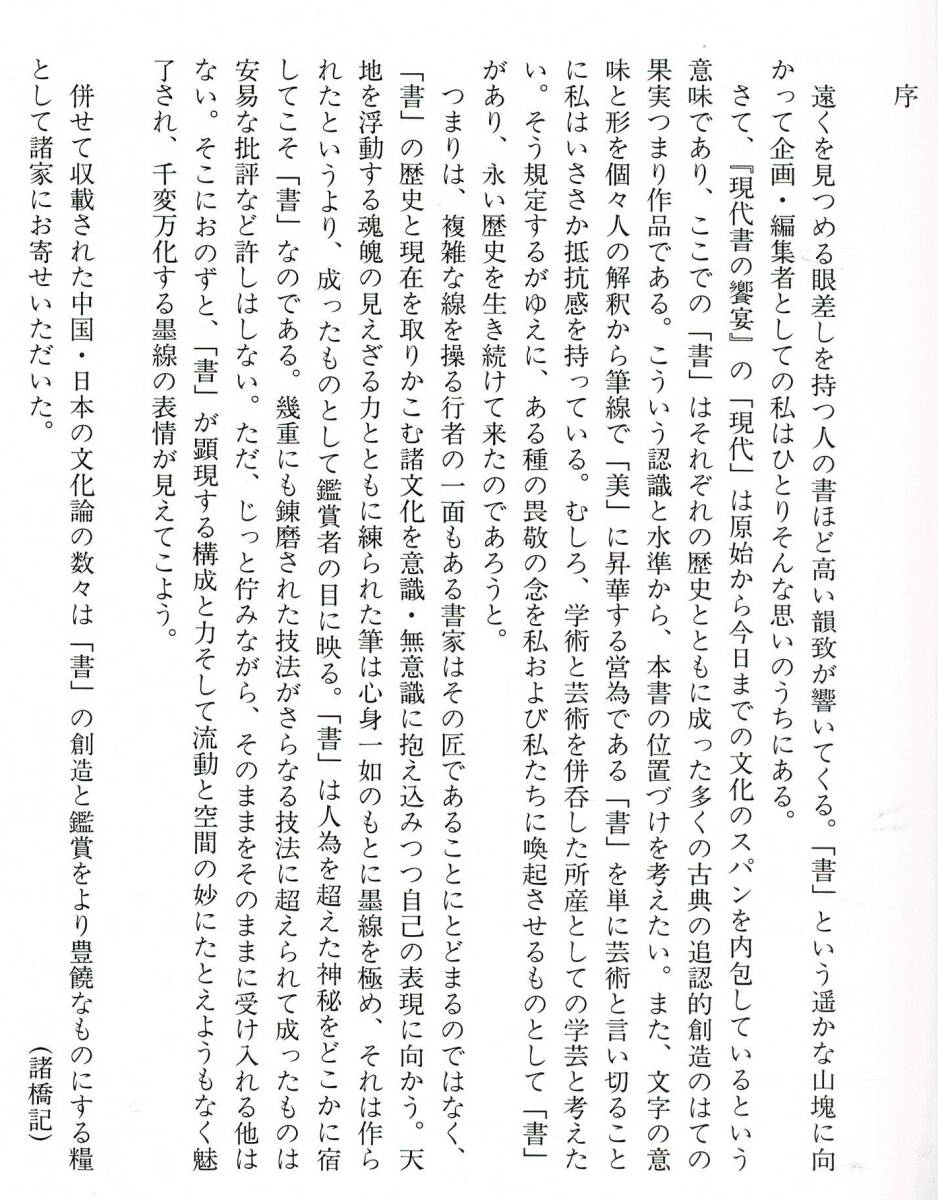 序
遠くを見つめる眼差しを持つ人の書ほど高い韻致が響いてくる。「書」という遥かな山塊に向
かって企画・編集者としての私はひとりそんな思いのうちにある。
さて、『現代書の饗宴』の「現代」は原始から今日までの文化のスパンを内包しているという
意味であり、ここでの「書」はそれぞれの歴史とともに成った多くの古典の追認的創造のはての
果実つまり作品である。こういう認識と水準から、本書の位置づけを考えたい。また、文字の意
味と形を個々人の解釈から筆線で「美」に昇華する営為である「書」を単に芸術と言い切ること
に私はいささか抵抗感を持っている。むしろ、学術と芸術を併呑した所産としての学芸と考えた
い。そう規定するがゆえに、ある種の畏敬の念を私および私たちに喚起させるものとして「書」
があり、永い歴史を生き続けて来たのであろうと。
つまりは、複雑な線を操る行者の一面もある書家はその匠であることにとどまるのではなく、
「書」の歴史と現在を取りかこむ諸文化を意識・無意識に抱え込みつつ自己の表現に向かう。天
地を浮動する魂魄の見えざる力とともに練られた筆は心身一如のもとに墨線を極め、それは作ら
れたというより、成ったものとして鑑賞者の目に映る。「書」は人為を超えた神秘をどこかに宿
してこそ「書」なのである。幾重にも錬磨された技法がさらなる技法に超えられて成ったものは
安易な批評など許しはしない。ただ、じっと佇みながら、そのままをそのままに受け入れる他は
ない。そこにおのずと、「書」が顕現する構成と力そして流動と空間の妙にたとえようもなく魅
了され、千変万化する墨線の表情が見えてこよう。
併せて収載された中国・日本の文化論の数々は「書」の創造と鑑賞をより豊饒なものにする糧
として諸家にお寄せいただいた。
（諸橋記）